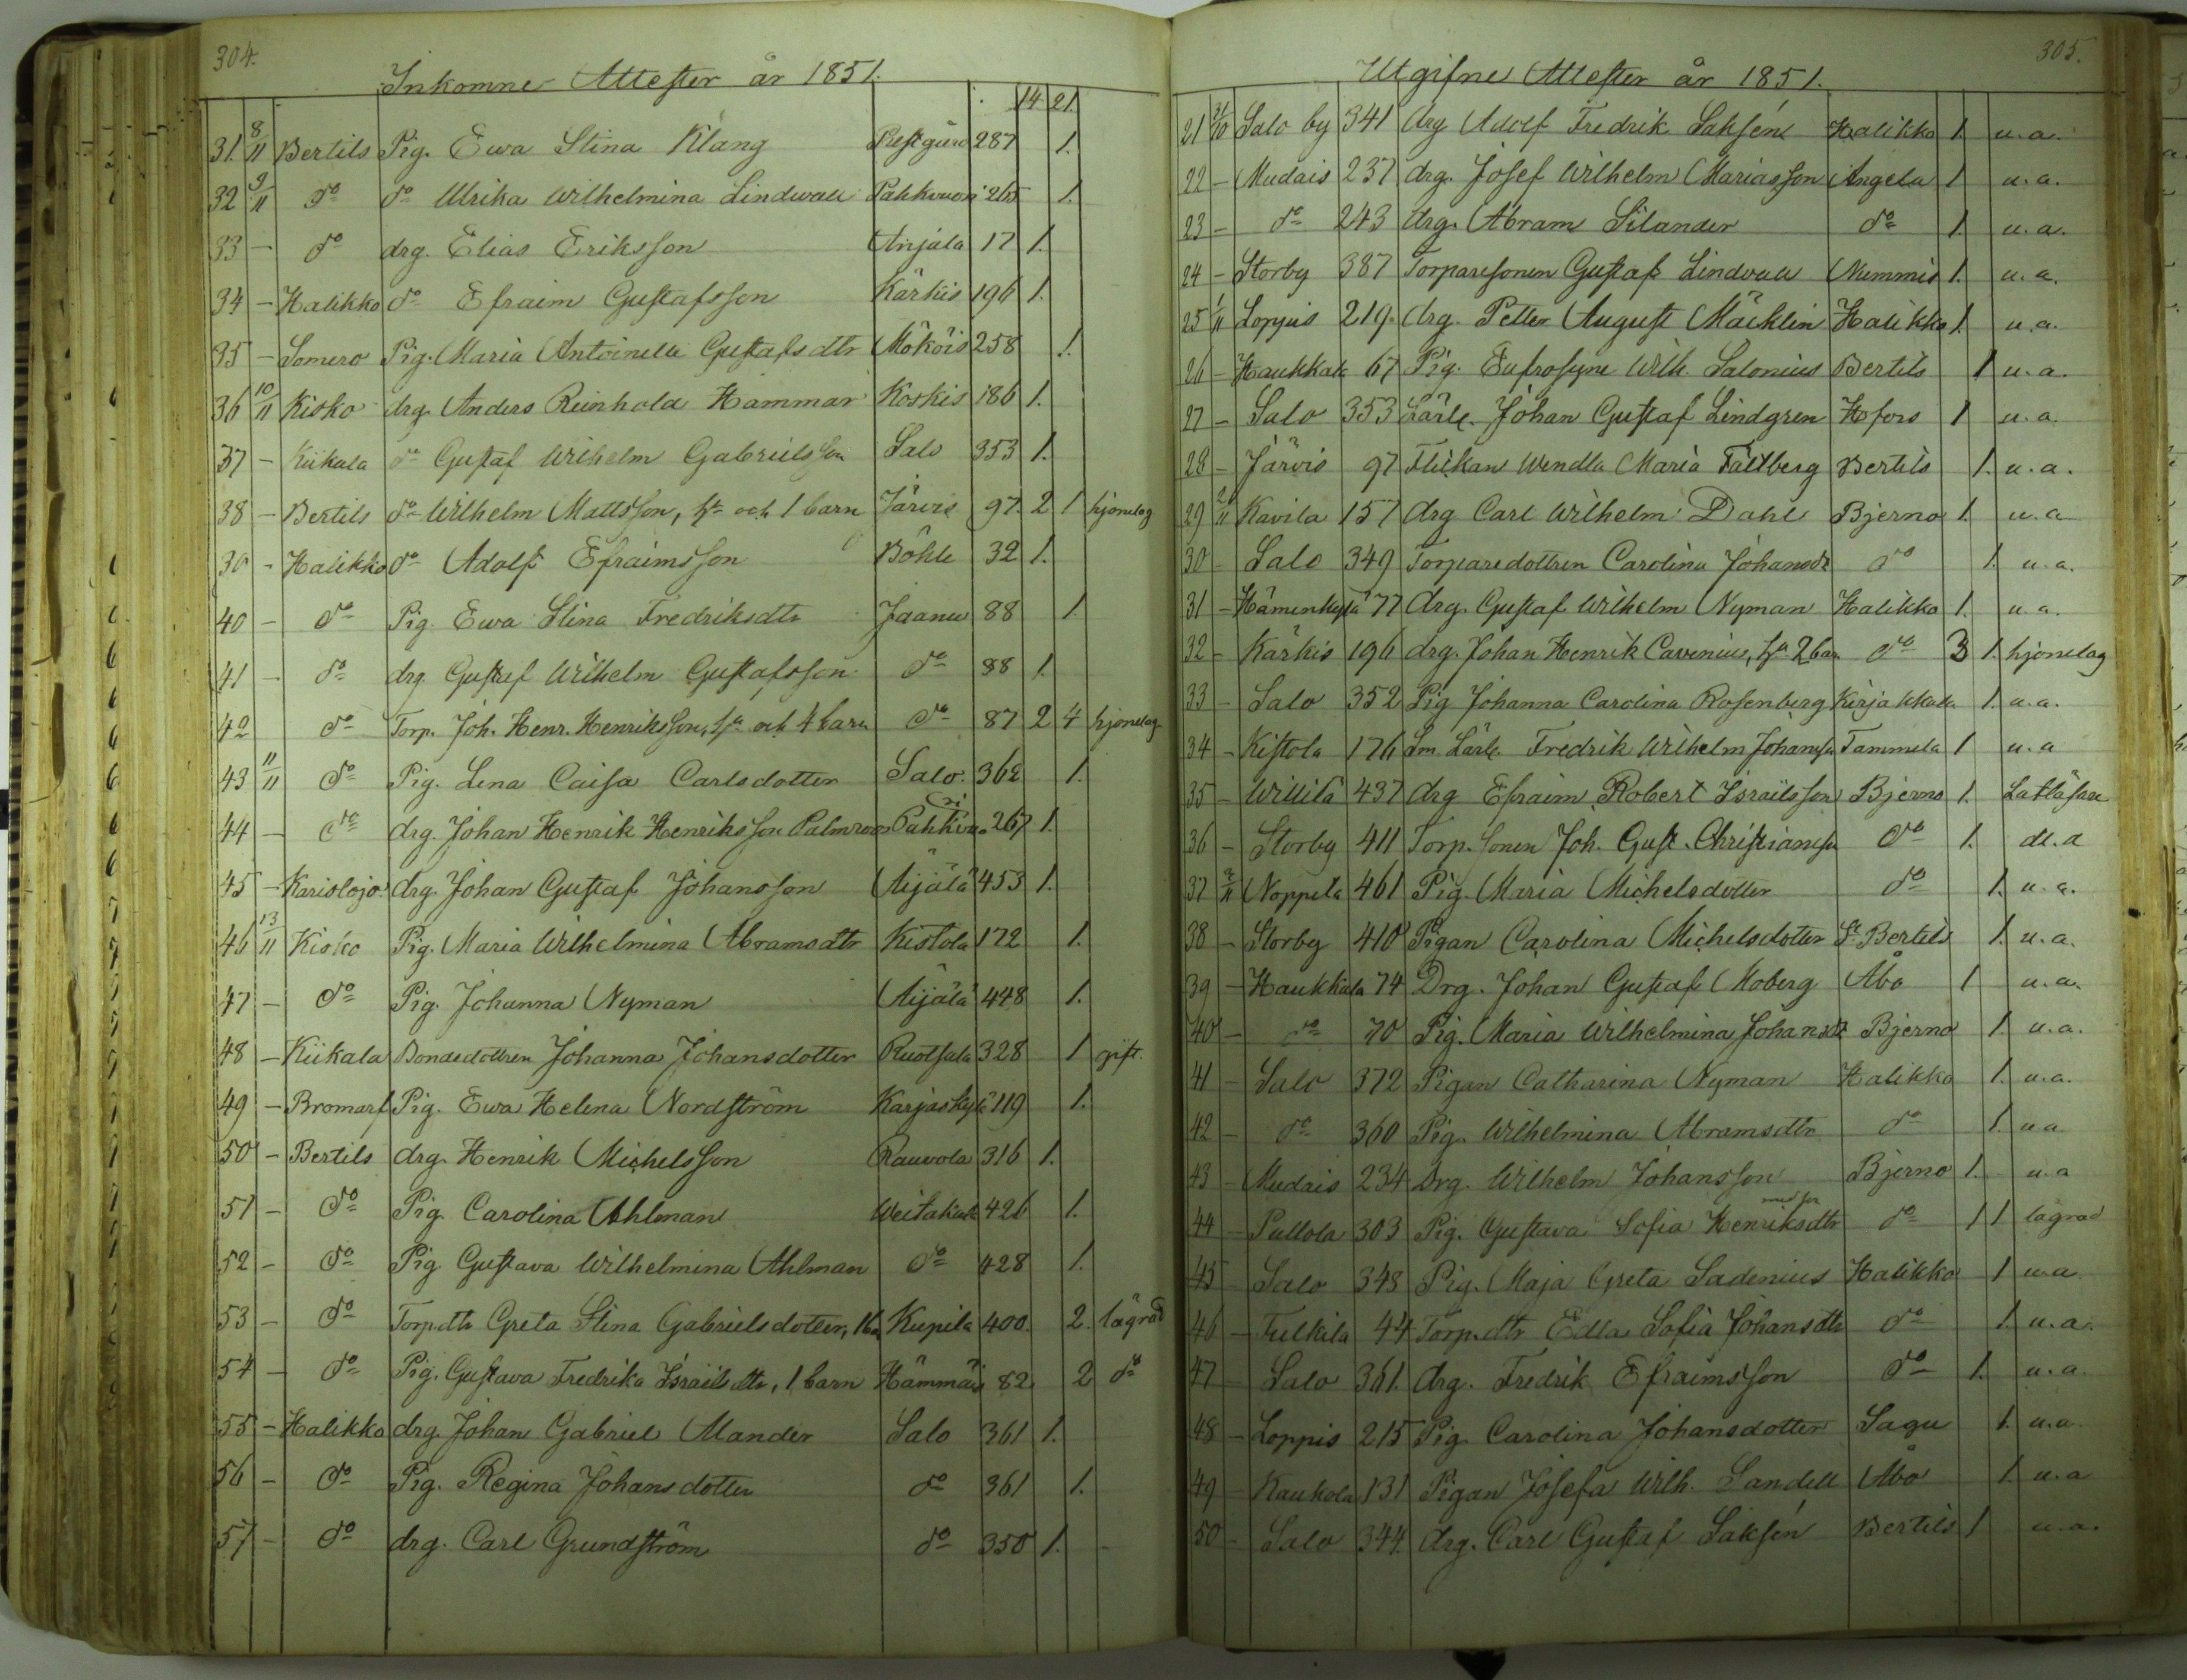 304.
Inkomne Attester år 1851.
14 21
31. 8/11 Bertils Pig. Ewa Stina Klang Prestgård 287 1.
32 9/11 do do Ulrika Wilhelmina Lindwall 265 1.
33 - do drg. Elias Eriksson Anjala 17 1.
34 - Halikko do Efraim Gustafsson Kärkis 196 1.
35 - Somero Pig. Maria Antoinella Gustafsdtr Mökois 258 1.
36 10/11 Kisko drg. Anders Reinhold Hammar Koskis 186 1.
37 - Kiikala do Gustaf Wilhelm Gabrielsson Salo 353 1.
38 - Bertils do Wilhelm Mattsson, hu och 1 barn Järvis 97 2 1 hjonelag
39 - Halikko do Adolf Efraimsson Böhle 32 1.
40 - do Pig. Ewa Stina Fredriksdtr Jaanu 88 1.
41 - do drg. Gustaf Wilhelm Gustafsson do 88 1.
42 do Torp. Joh. Henr. Henriksson, hu och 4 barn do 87 2 4 hjonelag
43 11/11 do Pig. Lena Caisa Carlsdotter Salo 362 1.
44 - do drg. Johan Henrik Henriksson Palmroos 267 1.
45 - Karislojo drg. Johan Gustaf Johansson Äijälä 453 1.
46 13/11 Kisko Pig. Maria Wilhelmina Abramsdtr Kistola 172 1.
47 - do Pig. Johanna Nyman Äijälä 448 1.
48 - Kiikala Bondedottren Johanna Johansdotter Ruotsala 328 1 gift.
49 - Bromarf Pig. Ewa Helena Nordström Karjaskylä 119 1.
50 - Bertils drg. Henrik Michelsson Rauvola 316 1.
51 - do Pig. Carolina Ahlman Weitakkala 426 1.
52 - do Pig. Gustava Wilhelmina Ahlman do 428 1.
53 - do Torp.dtr Greta Stina Gabrielsdotter, 1 ba Kupila 400. 2. lägrad
54 - do Pig. Gustava Fredrika Israilsdtr, 1 barn Hämmäis 82 2 do
55 - Halikko drg. Johan Gabriel Alander Salo 361 1.
56 - do Pig. Regina Johansdotter do 361 1.
57 - do drg. Carl Grundström do 350 1. -
305.
Utgifne Attester år 1851.
21 31/10 Salo by 341 drg Adolf Fredrik Saksén Halikko 1. u.a.
22 - Mudais 237 drg. Josef Wilhelm Mariasson Angela 1 u.a.
23 - do 243 drg. Abram Silander do 1. u.a.
24 - Storby 387 Torparesonen Gustaf Lindvall Nummis 1. u.a.
25 1/11 Loppis 219. drg. Petter August Mäcklin Halikko 1. u.a.
26 - Haukkala 67 Pig. Eufrosyne Wilh. Salonius Bertils 1 u.a.
27 - Salo 353 Lärl. Johan Gustaf Lindgren Hofors 1 u.a.
28 - Järvis 97 Flickan Wendla Maria Fältberg Bertils 1. u.a.
29 2/11 Kavila 157 drg Carl Wilhelm Dahl Bjerno 1. u.a
30 - Salo 349 Torparedottren Carolina Johansdr do 1. u.a.
31 - Hämenkylä 77 drg. Gustaf Wilhelm Nyman Halikko 1. u.a.
32 - Kärkis 196 drg. Johan Henrik Cavenius, hu 2 bar do 3 1. hjonelag
33 - Salo 352 Pig Johanna Carolina Rosenberg Kirjakkala 1. u.a.
34 - Kistola 176 Sm. Lärl. Fredrik Wilhelm Johansson Tammela 1 u.a
35 - Willilä 437 drg Efraim Robert Israilsson Bjerno 1.
36 - Storby 411 Torp. sonen Joh. Gust. Christiansson do 1.
37 3/11 Noppela 461 Pig. Maria Michelsdotter do 1. u.a.
38 - Storby 410 Pigan Carolina Michelsdotter St Bertils 1. u.a.
39 - Haukkala 74 Drg. Johan Gustaf Moberg Åbo 1 u.a.
40 - do 70 Pig. Maria Wilhelmina Johansdr Bjerno 1. u.a.
41 - Salo 372 Pigan Catharina Nyman Halikko 1. u.a.
42 - do 360 Pig. Wilhelmina Abramsdtr do 1. u.a
43 - Mudais 234 Drg. Wilhelm Johansson Bjerno 1. u.a
44 - Pullola 303 Pig. Gustava Sofia Henriksdtr med son do 1 1 lägrad
45 - Salo 348 Pig. Maja Greta Sadenius Halikko 1 u.a
46 - Tulkila 44 Torp.dtr Edla Sofia Johansdtr do 1. u.a.
47 - Salo 361. drg. Fredrik Efraimsson do 1. u.a.
48 - Loppis 215 Pig Carolina Johansdotter Sagu 1. u.a.
49 - Kaukola 131 Pigan Josefa Wilh. Sandell Åbo 1. u.a
50 - Salo 344. drg. Carl Gustaf Saksén Bertils 1 u.a.